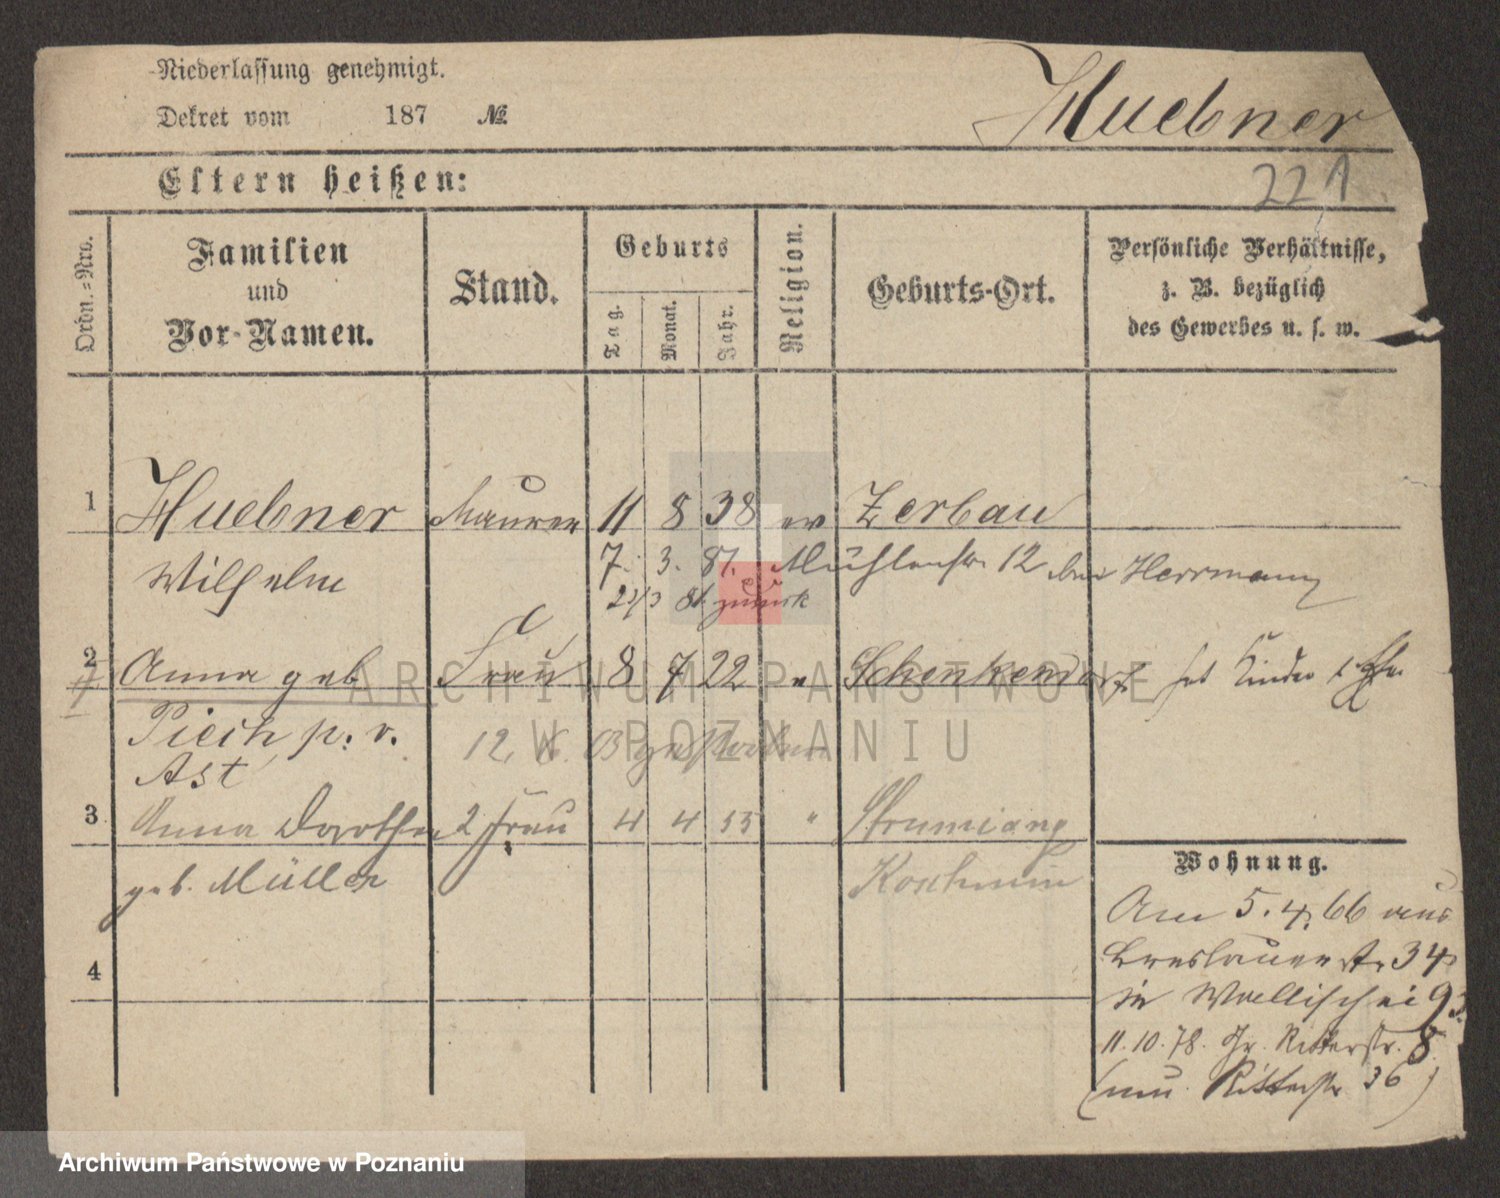 Niederlassung genehmigt.
Dekret vom 187 №.
Huebner
Eltern heißen:
221
Ordn.=Nro.
Familien
und
Vor-Namen.
Stand.
Geburts
Tag.
Monat.
Jahr.
Religion.
Geburts-Ort.
Persönliche Verhältnisse,
z. B. bezüglich
des Gewerbes u. s. w.
1 Huebner Maurer 11 8 38 ev Zerbau
Wilhelm 7. 3. 81. Mühlenstr 12 bei Herrmann
81. zurück
2 Anna geb Frau 8 7 22 Schenkendorf hat Kinder 1 Ehe
Piech p. v.
Ast
12.
3 Anna Dorothea 2 Frau 4 4 55 "
geb. Müller
4
Wohnung.
Am 5.4.66 aus
Breslauerstr 34
in Wallischei 93
11.10.78. Gr. Ritterstr. 8
Ritterstr 36)
ARCHIWUM PAŃSTWOWE
W POZNANIU
Archiwum Państwowe w Poznaniu